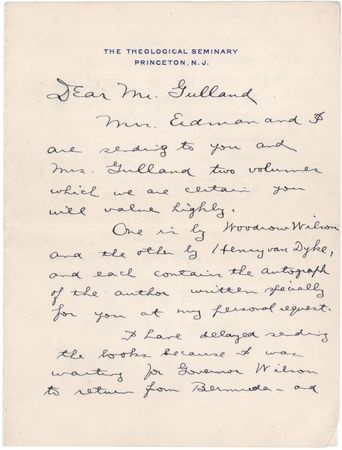 THE THEOLOGICAL SEMINARY
PRINCETON, N.J.
Dear Mr. Gulland
Mrs. Erdman and I
are sending to you and
Mrs. Gulland two volumes
which we are certain you
will value highly.
One is by Woodrow Wilson
and the other by Henry van Dyke,
and each contains the autograph
of the author written specially
for you at my personal request.
I have delayed sending
the books because I was
waiting for Governor Wilson
to return from Bermuda - and